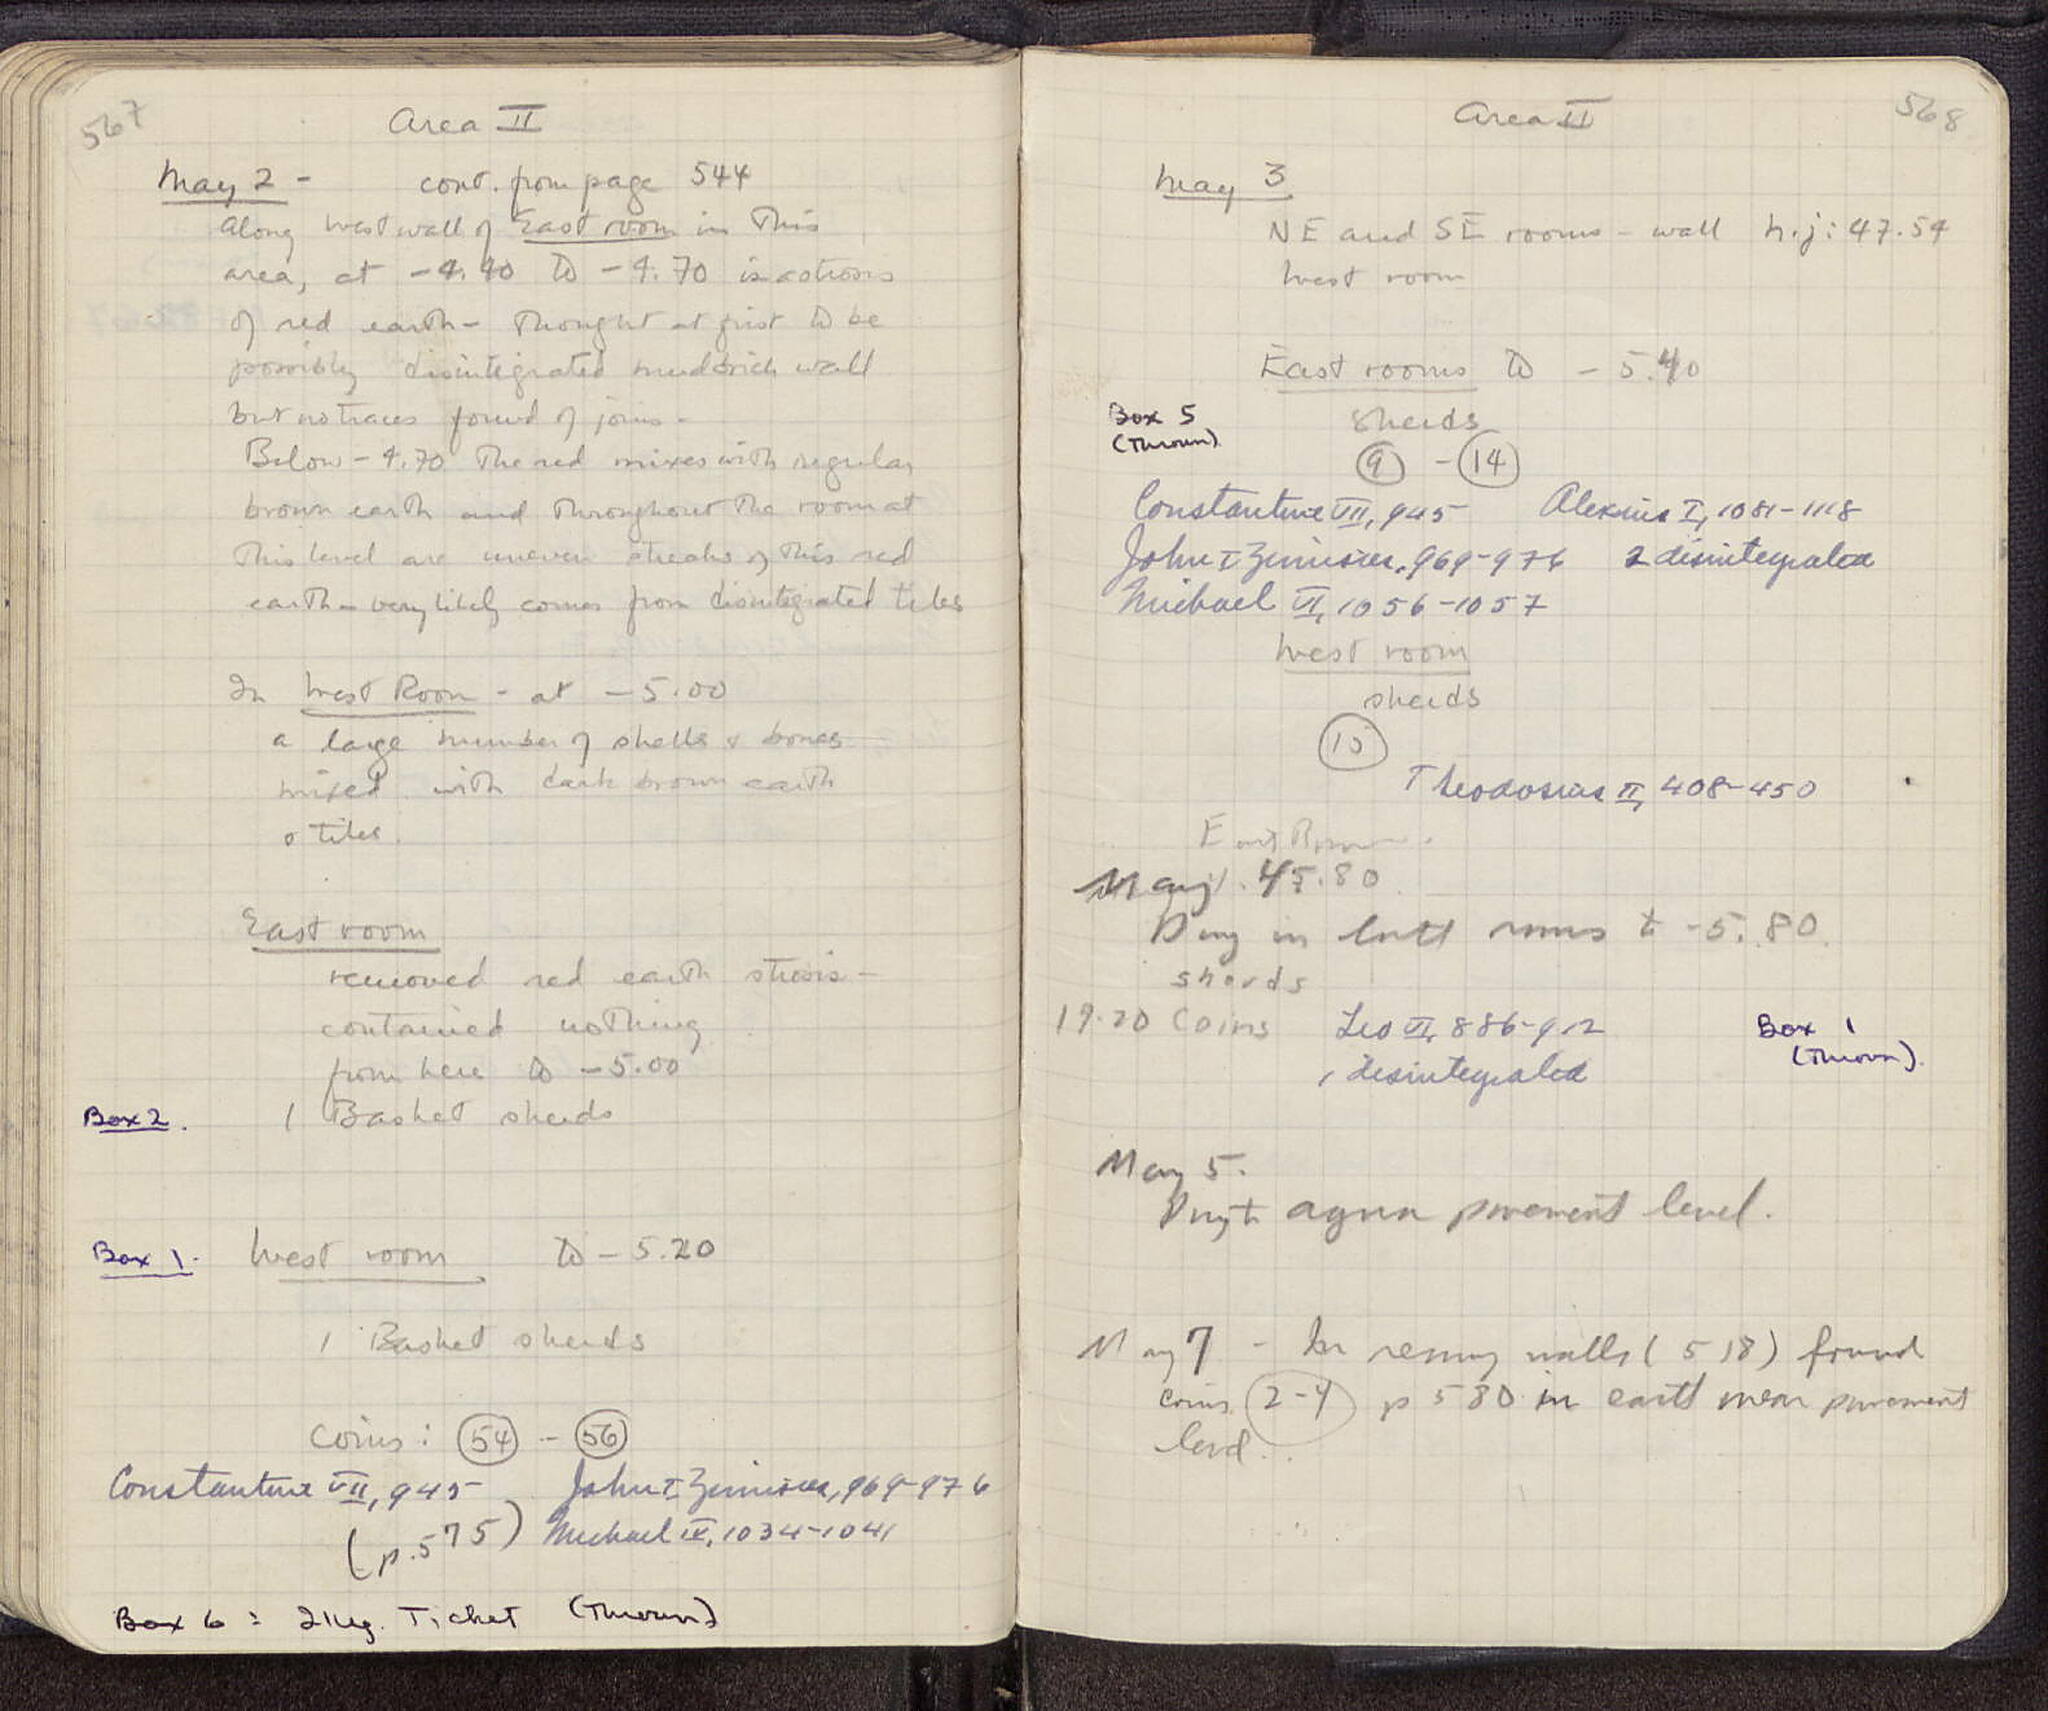 567
Area II
May 2 - cont. from page 544
Along West wall of East room in this
area, at -4.40 to -4.70 is a strosis
of red earth - thought at first to be
possibly disintegrated mudbrick wall
but no traces found of joins -
Below -4.70 the red mixes with regular
brown earth and throughout the room at
this level are uneven streaks of this red
earth - very likely comes from disintegrated tiles
In West Room - at -5.00
a large number of shells & bones
mixed with dark brown earth
& tiles.
East room
removed red earth strosis -
contained nothing
from here to -5.00
Box 2. 1 Basket sherds
Box 1. West room to -5.20
1 Basket sherds
Coins: 54 - 56
Constantine VII, 945 John I Zimisces, 969-976
(p. 575) Michael IV, 1034-1041
Box 6 : Ticket (Thrown)
568
Area II
May 3
NE and SE rooms - wall h.j: 47.54
West room
East rooms to -5.40
Box 5 sherds
(Thrown)
9 - 14
Constantine VII, 945 Alexius I, 1081-1118
John I Zimisces, 969-976 2 disintegrated
Michael VI, 1056-1057
West room
sherds
15
Theodosius II, 408-450
East Room
May 4 5.80
Dug in both rooms to -5.80.
sherds
19-20 Coins Leo VI, 886-912 Box 1
1 disintegrated (Thrown).
May 5.
Dug to agora pavement level.
May 7 - In remvg walls (518) found
coins 2-4 p 580 in earth near pavement
level.